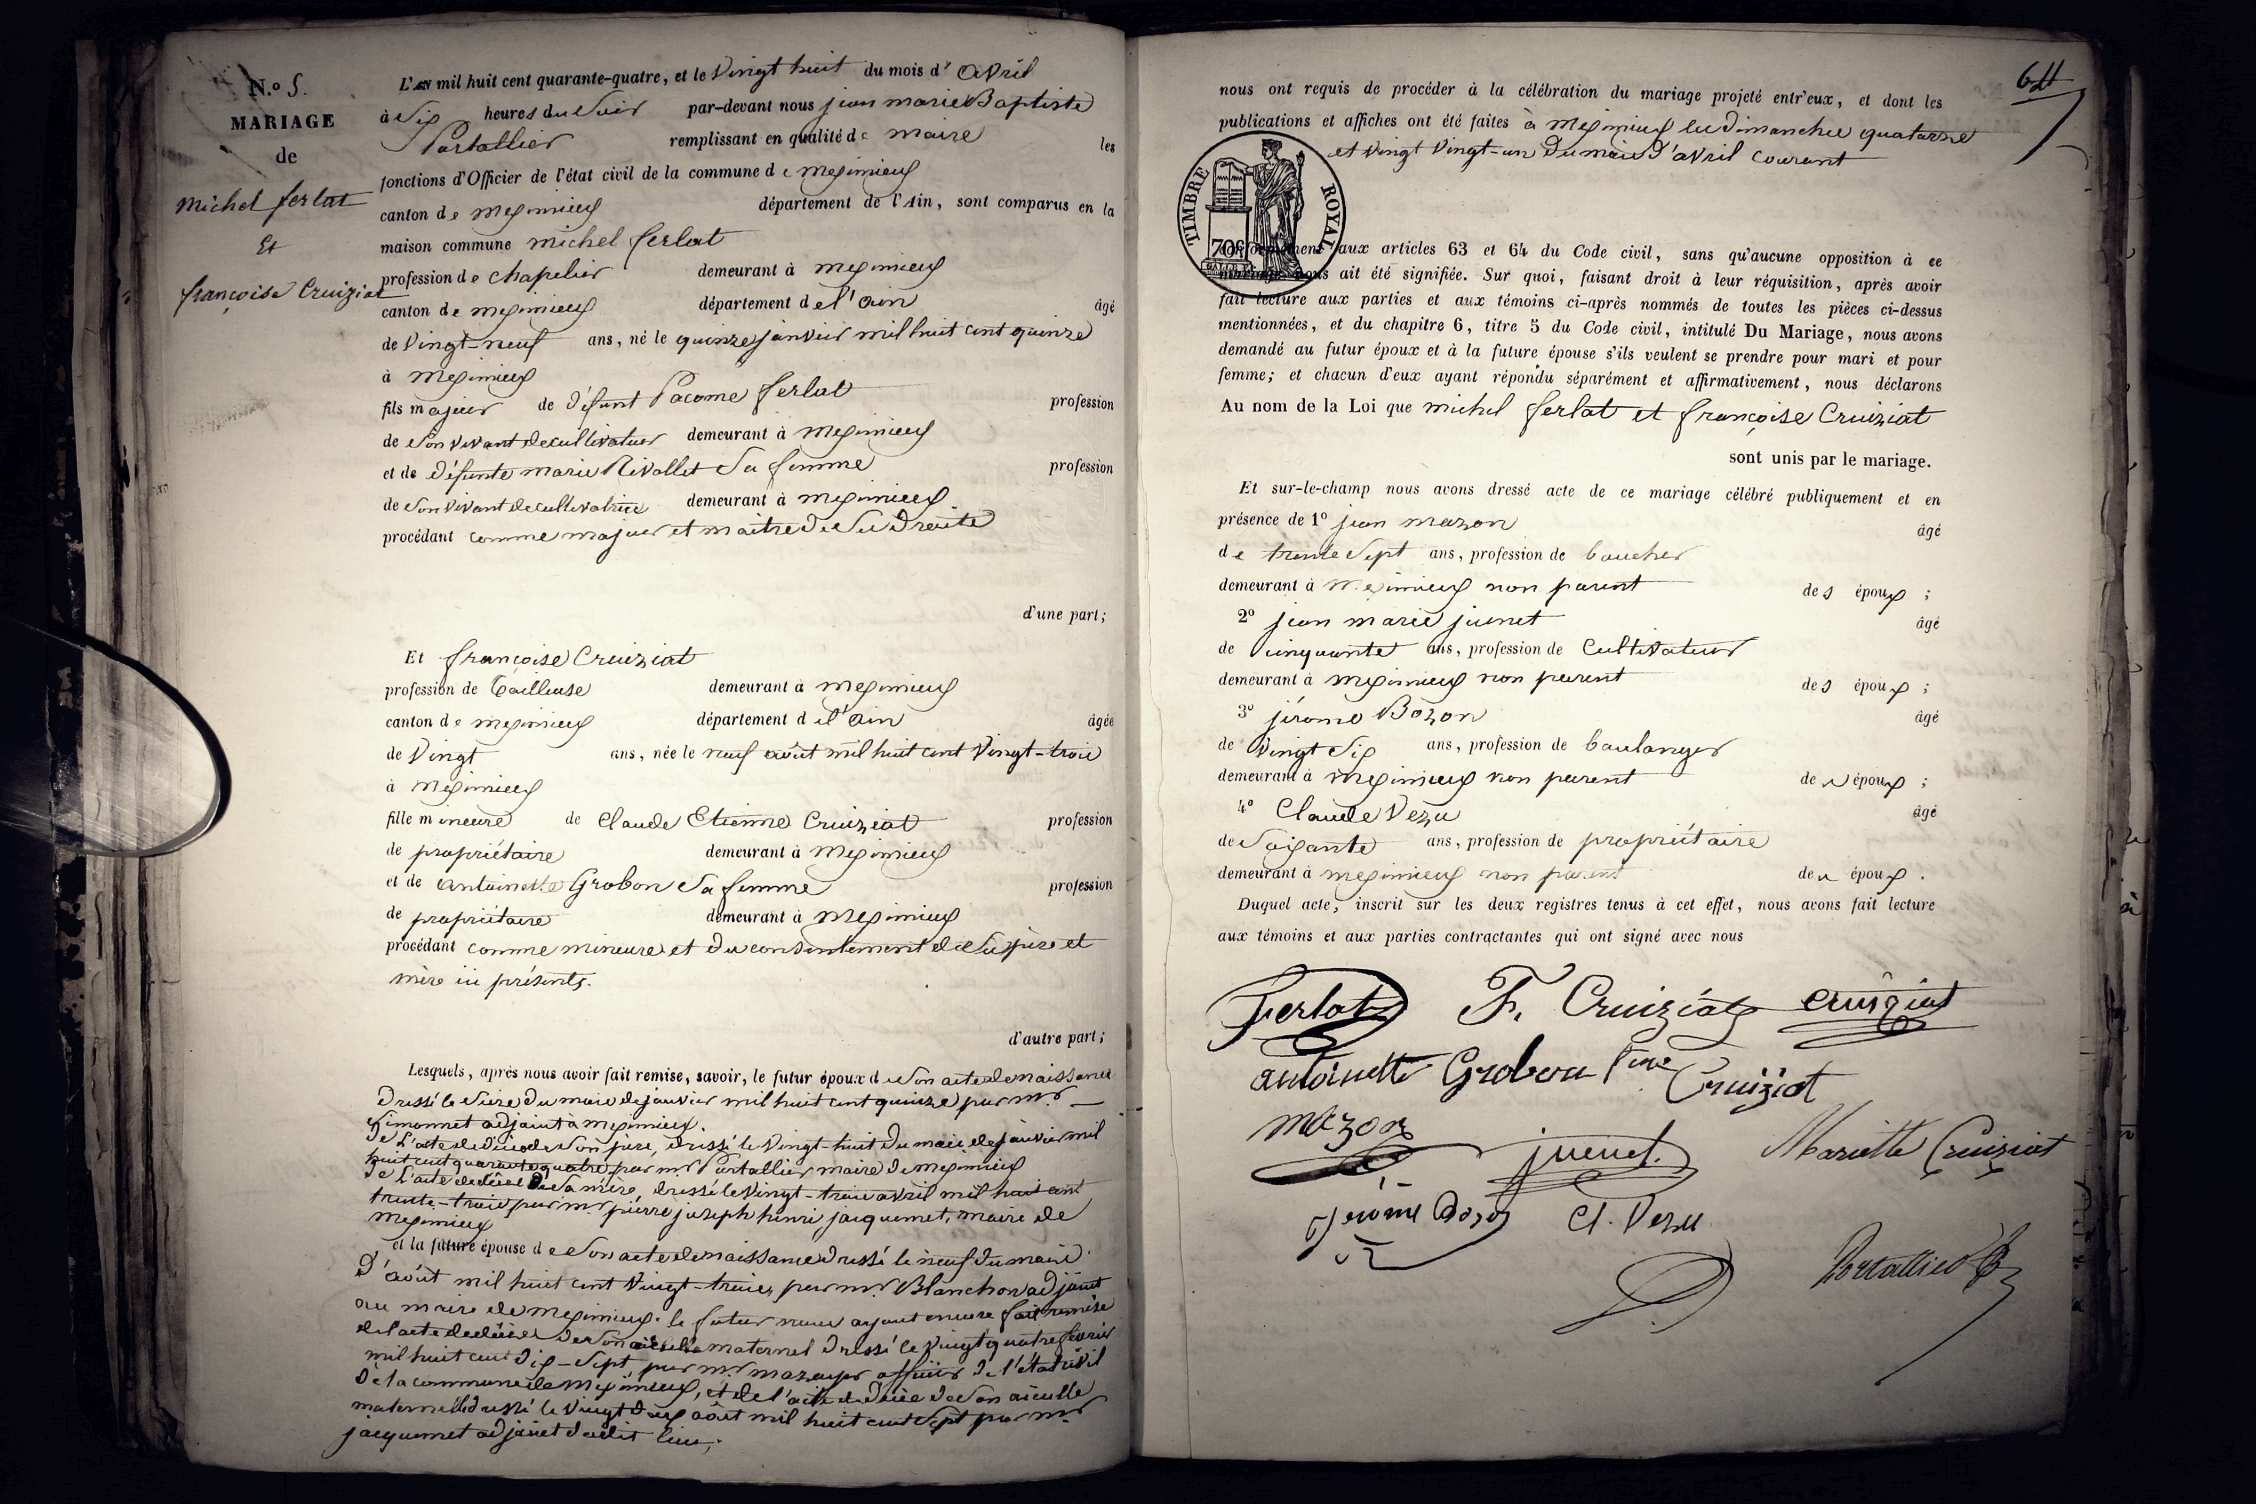 N.º 5.
MARIAGE
de
michel ferlat
Et
françoise Cruiziat
L'AN mil huit cent quarante-quatre, et le vingt huit du mois d' avril
à Six heures du Soir par-devant nous jean marie Baptiste
Portallier remplissant en qualité de maire les
fonctions d'Officier de l'état civil de la commune de meximieux
canton de meximieux département de l'Ain, sont comparus en la
maison commune michel ferlat
profession de chapelier demeurant à meximieux
canton de meximieux département de l'ain âgé
de vingt-neuf ans, né le quinze janvier mil huit cent quinze
à meximieux
fils majeur de défunt Pacome ferlat profession
de Son vivant de cultivateur demeurant à meximieux
et de défunte marie Rivollet Sa femme profession
de Son vivant de cultivatrice demeurant à meximieux
procédant comme majeur et maitre de Se Droite
d'une part;
Et françoise Cruiziat
profession de tailleuse demeurant à meximieux
canton de meximieux département de l'ain âgée
de vingt ans, née le neuf août mil huit cent vingt-trois
à meximieux
fille mineure de Claude Etienne Cruiziat profession
de propriétaire demeurant à meximieux
et de antoinette Grobon Sa femme profession
de propriétaire demeurant à meximieux
procédant comme mineure et du consentement de Sa père et
mère ici présents.
d'autre part;
Lesquels, après nous avoir fait remise, savoir, le futur époux de Son acte de naissance
dressé le Seize du mois de janvier mil huit cent quinze par mr
Simonnet adjoint à meximieux.
de L'acte de décès de Son père, dressé le vingt-huit du mois de janvier mil
huit cent quarante quatre par mr Portallier maire de meximieux
de L'acte de décès de Sa mère, dressé le vingt-trois avril mil huit cent
trente-trois par mr pierre joseph henri jacquemet, maire de
meximieux
et la future épouse de Son acte de naissance dressé le neuf du mois
d'août mil huit cent vingt-trois par mr Blanchon adjoint
au maire de meximieux. le futur nous ayant encore fait remise
de l'acte de décès de Son aieul maternel dressé le vingt quatre février
mil huit cent dix-Sept par mr mazuyer officier de l'état civil
de la commune de meximieux, et de l'acte de décès de Son aieulle
maternelle dressé le vingt deux août mil huit cent Sept par mr
jacquemet adjoint dudit lieu;
64
nous ont requis de procéder à la célébration du mariage projeté entr'eux, et dont les
publications et affiches ont été faites à meximieux les dimanches quatorze
et vingt vingt-un du mois d'avril courant
TIMBRE ROYAL
70c
conformément aux articles 63 et 64 du Code civil, sans qu'aucune opposition à ce
mariage nous ait été signifiée. Sur quoi, faisant droit à leur réquisition, après avoir
fait lecture aux parties et aux témoins ci-après nommés de toutes les pièces ci-dessus
mentionnées, et du chapitre 6, titre 5 du Code civil, intitulé Du Mariage, nous avons
demandé au futur époux et à la future épouse s'ils veulent se prendre pour mari et pour
femme; et chacun d'eux ayant répondu séparément et affirmativement, nous déclarons
Au nom de la Loi que michel ferlat et françoise Cruiziat
sont unis par le mariage.
Et sur-le-champ nous avons dressé acte de ce mariage célébré publiquement et en
présence de 1º jean mazon âgé
de trente Sept ans, profession de boucher
demeurant à meximieux non parent des époux ;
2º jean marie junet âgé
de Cinquante ans, profession de Cultivateur
demeurant à meximieux non parent des époux ;
3º jérome Bozon âgé
de vingt Six ans, profession de boulanger
demeurant à meximieux non parent des époux ;
4º Claude Vezu âgé
de Soixante ans, profession de propriétaire
demeurant à meximieux non parent des époux .
Duquel acte, inscrit sur les deux registres tenus à cet effet, nous avons fait lecture
aux témoins et aux parties contractantes qui ont signé avec nous
Ferlat F. Cruiziat Cruiziat
antoinette Grobon fme Cruiziat
mazon juenet. Mariette Cruiziat
Jerome Bozon Cl. Vezu
Portallier